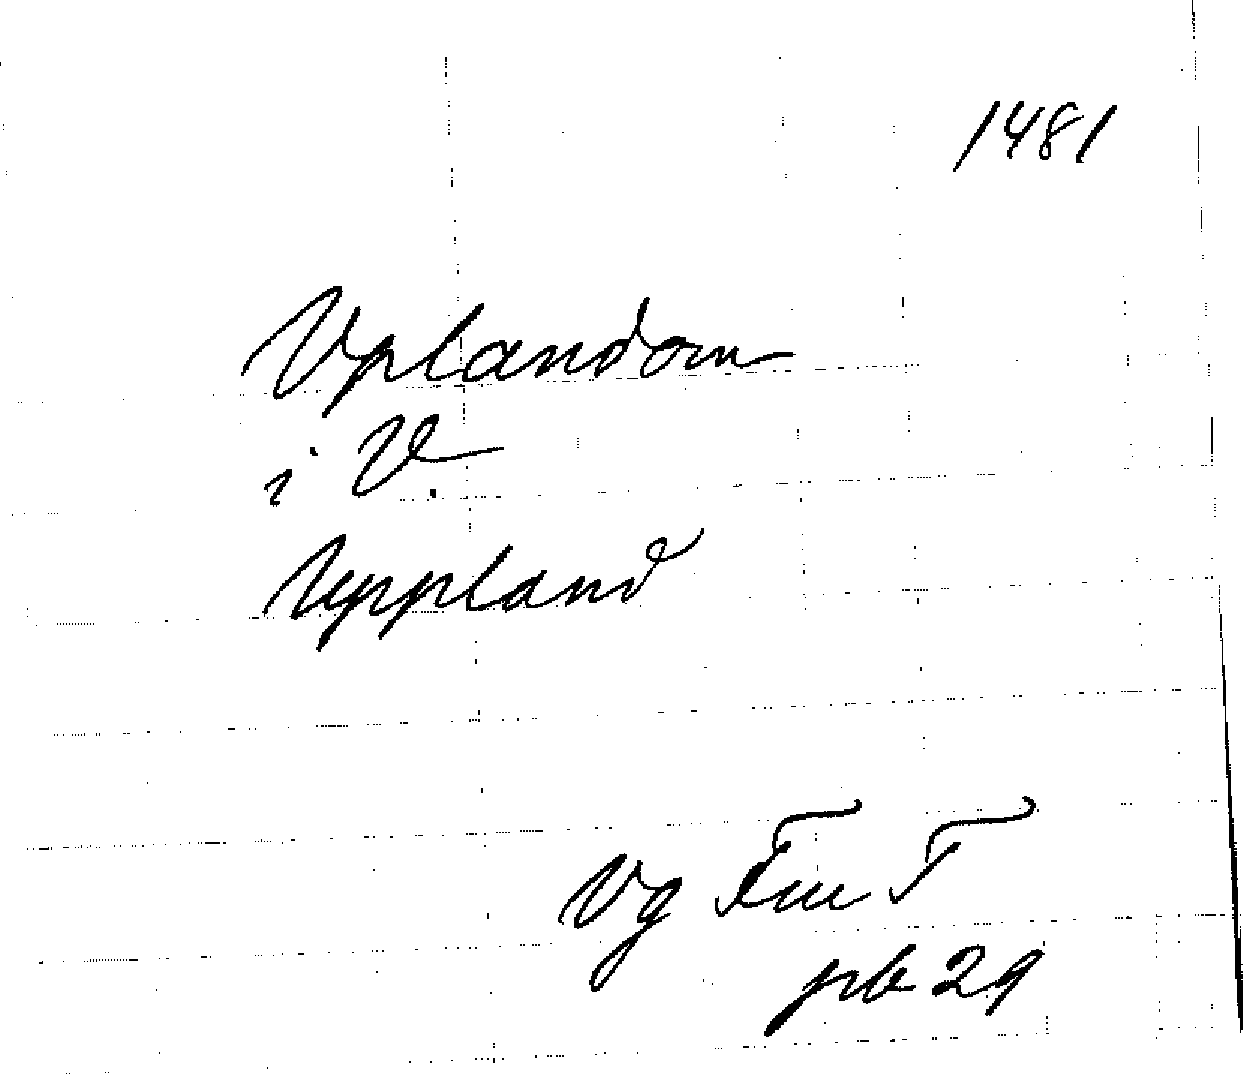 1481
Vplandom
i V.
Uppland
Vg Fm T
pb 29